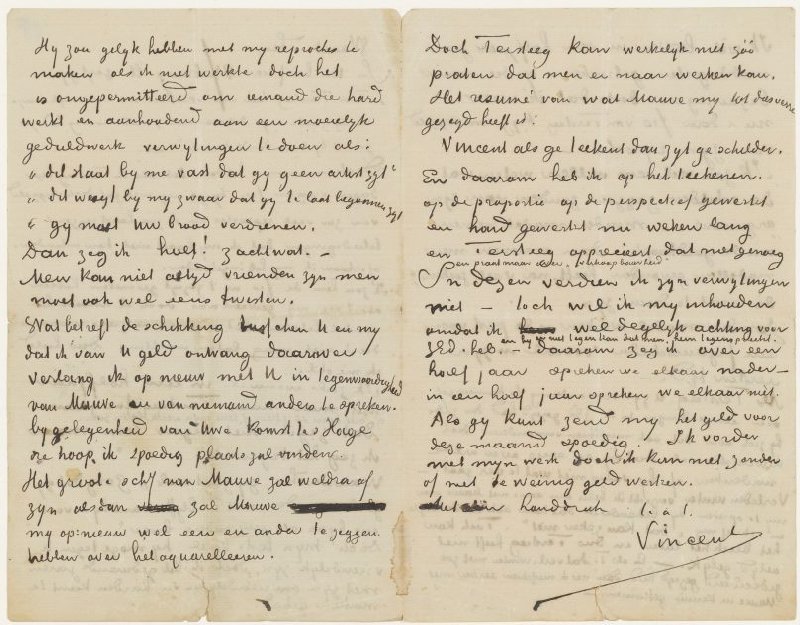 Hy zou gelyk hebben met my reproches te
maken als ik niet werkte doch het
is ongepermitteerd om iemand die hard
werkt en aanhoudend aan een moeielyk
geduldwerk verwylingen te doen als:
„dit staat by me vast dat gy geen artist zyt"
„dit weegt by my zwaar dat gy te laat begonnen zyt
„gy moet Uw brood verdienen.
Dan zeg ik halt! zachtwat. –
Men kan niet altyd vrienden zyn men
moet ook wel eens twisten.
Wat betreft de schikking tusschen U en my
dat ik van U geld ontvang daarover
verlang ik op nieuw met U in tegenwoordigheid
van Mauve en van niemand anders te spreken.
by gelegenheid van Uwe komst te s Hage
die hoop ik spoedig plaats zal vinden.
Het groote schy van Mauve zal weldra af
zyn alsdan zal Mauve
my op nieuw wel een en ander te zeggen
hebben over het aquarelleeren.
Doch Tersteeg kan werkelyk niet zóó
praten dat men er naar werken kan.
Het resumé van wat Mauve my tot dusverre
gezegd heeft is:
Vincent als ge teekent dan zyt ge schilder.
En daarom heb ik op het teekenen.
op de proportie op de perspectief gewerkt
en hard gewerkt nu weken lang
en Tersteeg apprecieert dat niet genoeg
en praat maar over „verkoopbaarheid"
In dezen verdien ik zyn verwylingen
niet – toch wil ik my inhouden
omdat ik wel degelyk achting voor
ZEd. heb. – daarom zeg ik over een
en hy er niet tegen kan dat men hem tegenspreekt.
half jaar spreken we elkaar nader –
in een half jaar spreken we elkaar niet.
Als gy kunt zend my het geld voor
deze maand spoedig. Ik vorder
met myn werk doch ik kan niet zonder
of met te weinig geld werken.
Met een handdruk t. à t.
Vincent